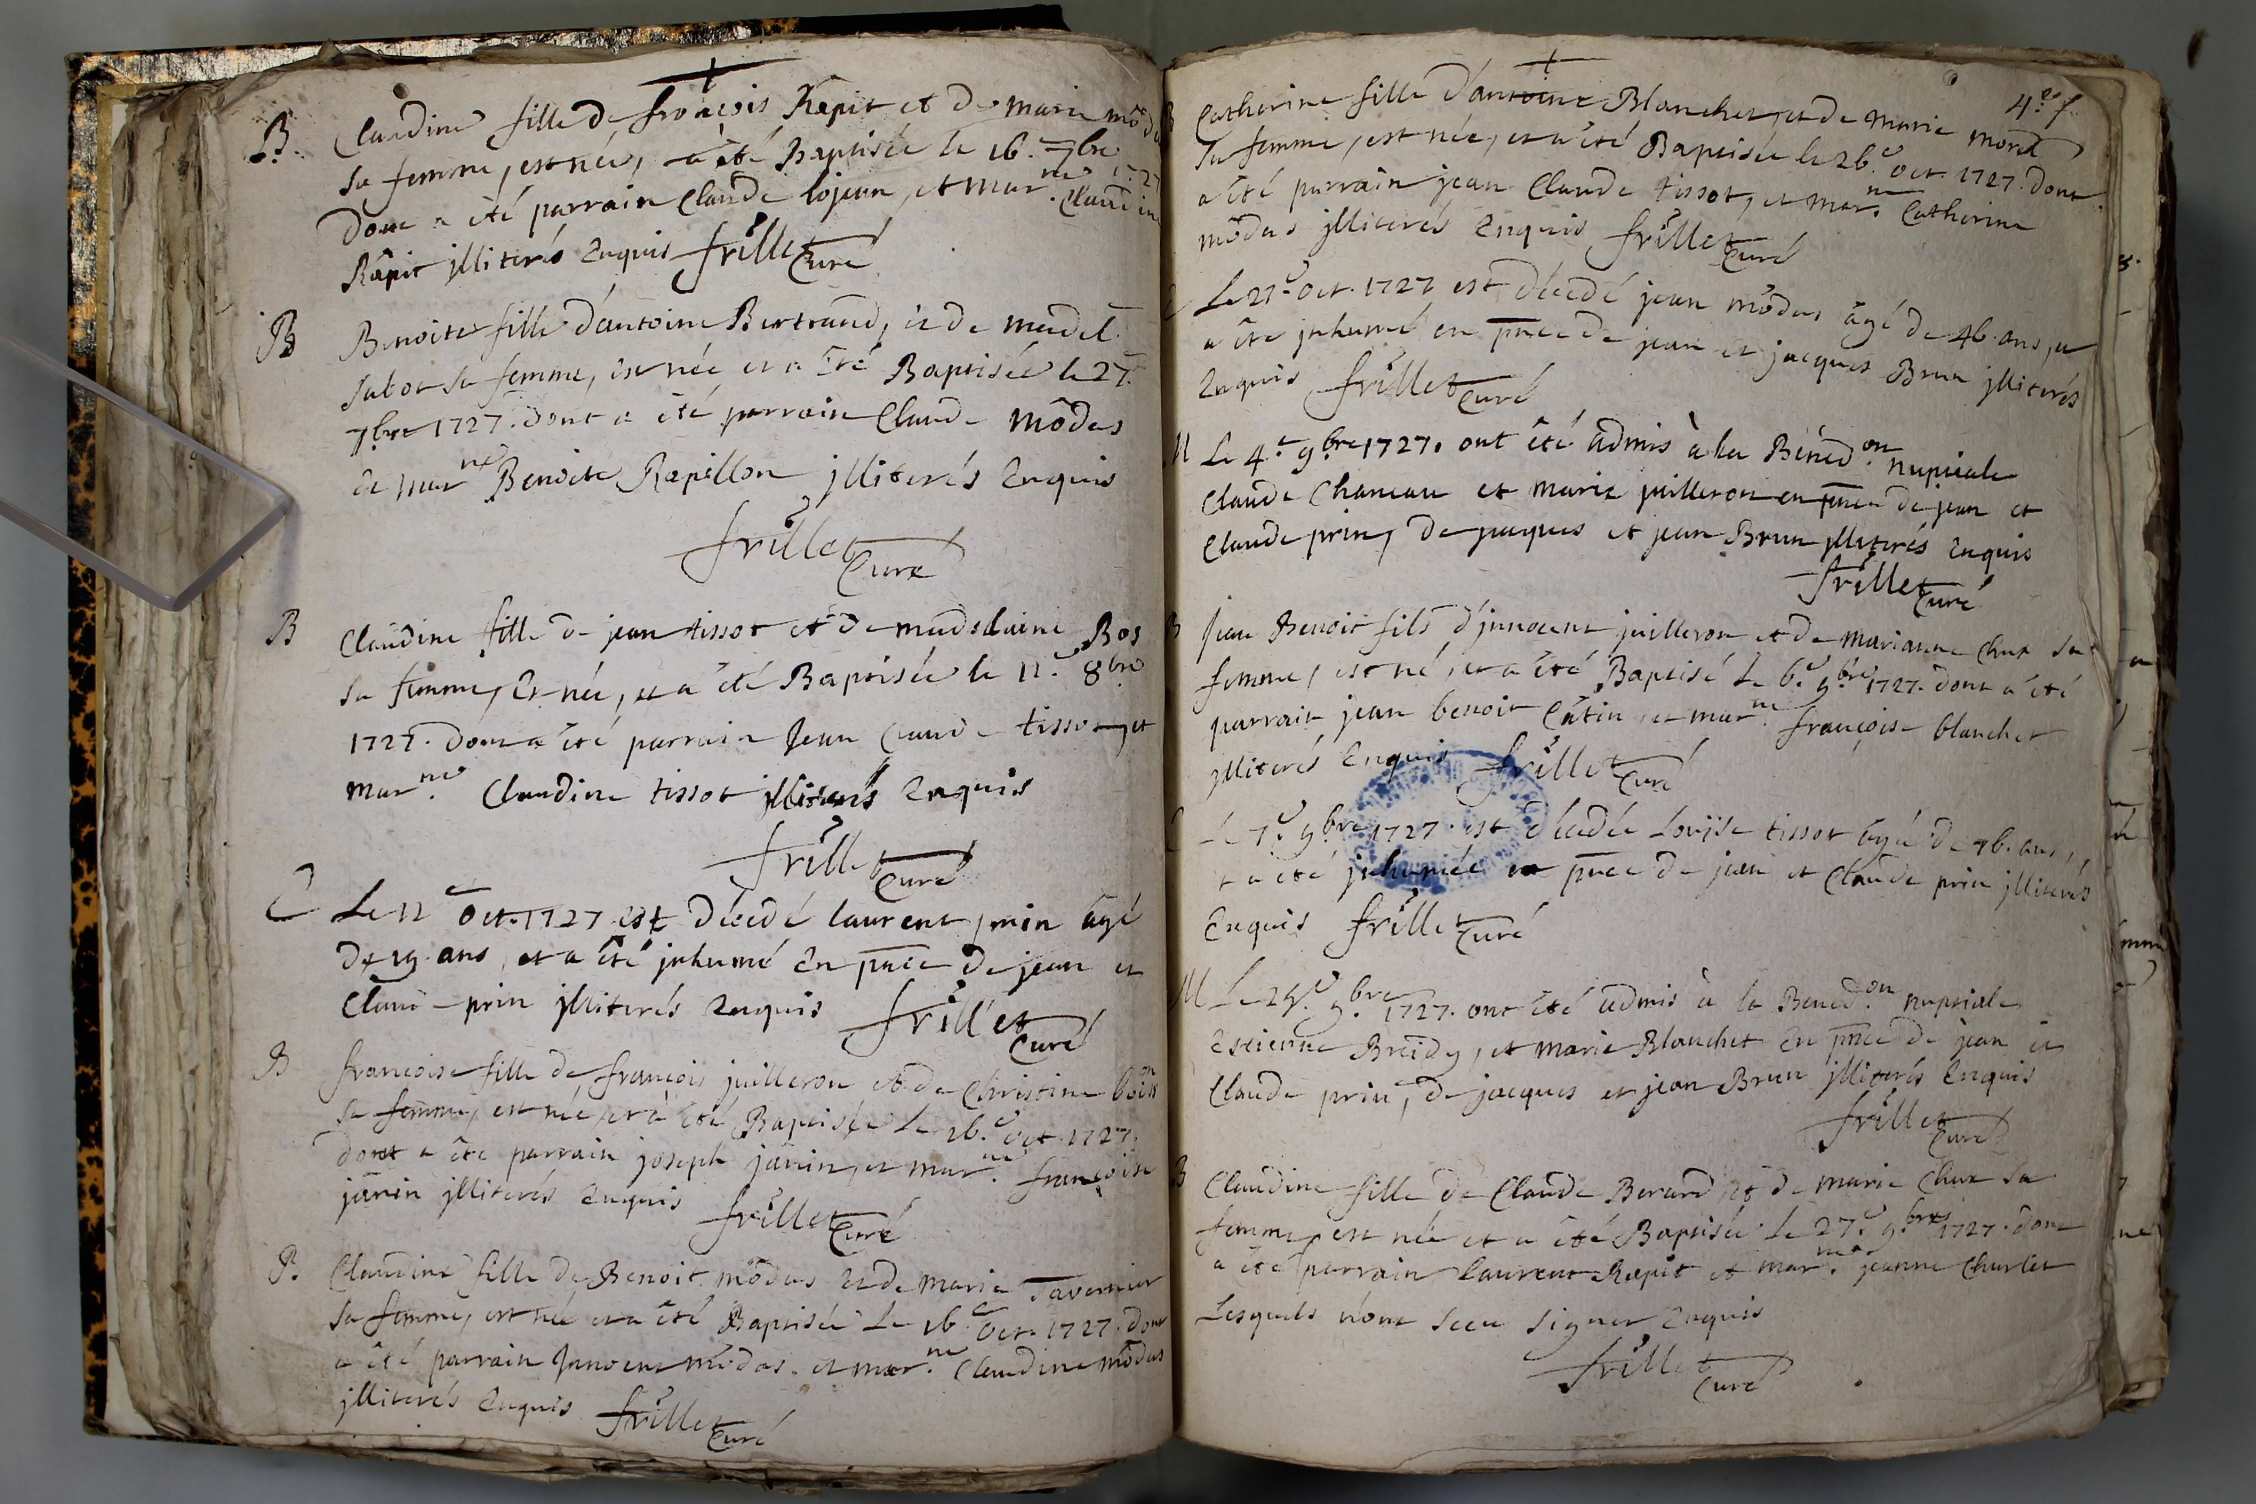 B. Claudine fille de françois Rapit et de marie môd
sa femme, est née, a été Baptisée le 16. 7bre 1727
dont a été parrain Claude lojean, et marne. Claudine
Rapit jlliterés Enquis frillet Curé
B Benoite fille d'antoine Bertrand, et de madel.
sa femme, est née et a été Baptisée le 27.
7bre 1727. dont a été parrain Claude môdas
et marne Benoite Rapillon jlliterés Enquis
frillet Curé
B Claudine fille de jean tissot et de madslaine Bos
sa femme, Est née, et a été Baptisée le 11.e 8bre
1727. dont a été parrain Jean Claude tissot, et
marne. Claudine tissot jlliterés Enquis
frillet Curé
Le 12 oct. 1727 est décedé laurent prin âgé
de 19 ans, et a été jnhumé En pnce de jean et
Claude prin jlliterés Enquis frillet Curé
B francoise fille de françois juilleron et de Christine
sa femme, est née, et a été Baptisée Le 16.e oct. 1727.
dont a été parrain joseph janin, et marne. françoise
janin jlliterés Enquis frillet Curé
B. Claudine fille de Benoit môdas et de marie Tavernier
sa femme, est née et a été Baptisée Le 16.e Oct. 1727. dont
a été parrain Jnnocent môdas. et marne. Claudine môdas
jlliterés Enquis frillet Curé
4.e f.
B Catherine fille d'antoine Blanchet, et de marie morel
sa femme, est née, et a été Baptisée le 26.e oct. 1727. dont
a été parrain jean Claude tissot, et marne. Catherine
môdas jlliterés Enquis frillet Curé
Le 27.e Oct. 1727 est décedé jean môdas âgé de 46. ans, et
a été jnhumé en pnce de jean et jacques Brun jlliterés
Enquis frillet Curé
M Le 4.e 9bre 1727. ont été admis à la Bénédon. nuptiale
Claude Chaneau et marie juilleron en pnce de jean et
Claude prin, de jacques et jean Brun jlliterés Enquis
frillet Curé
B Jean Benoit fils d'jnnocent juilleron et de marianne Chux sa
femme, est né, et a été Baptisé Le 6.e 9bre 1727. dont a été
parrain jean benoit Câtin et marne. françoise blanchet
jlliterés Enquis frillet Curé
Le 7.e 9bre 1727. est décedée Lovise tissot âgé de 76. ans,
et a été jnhumée en pnce de jean et Claude prin jlliterés
Enquis frillet Curé
M Le 25.e 9bre 1727. ont été admis à la Bened.on nuptiale
Estienne Breidy, et marie Blanchet En pnce de jean et
Claude prin, de jacques et jean Brun jlliterés Enquis
frillet Curé
B Claudine fille de Claude Berard, et de marie Chux sa
femme, est née et a été Baptisée Le 27.e 9bre 1727. dont
a été parrain laurent Rapit et marne. jeanne Charlet
Lesquels n'ont sceu signer Enquis
frillet Curé